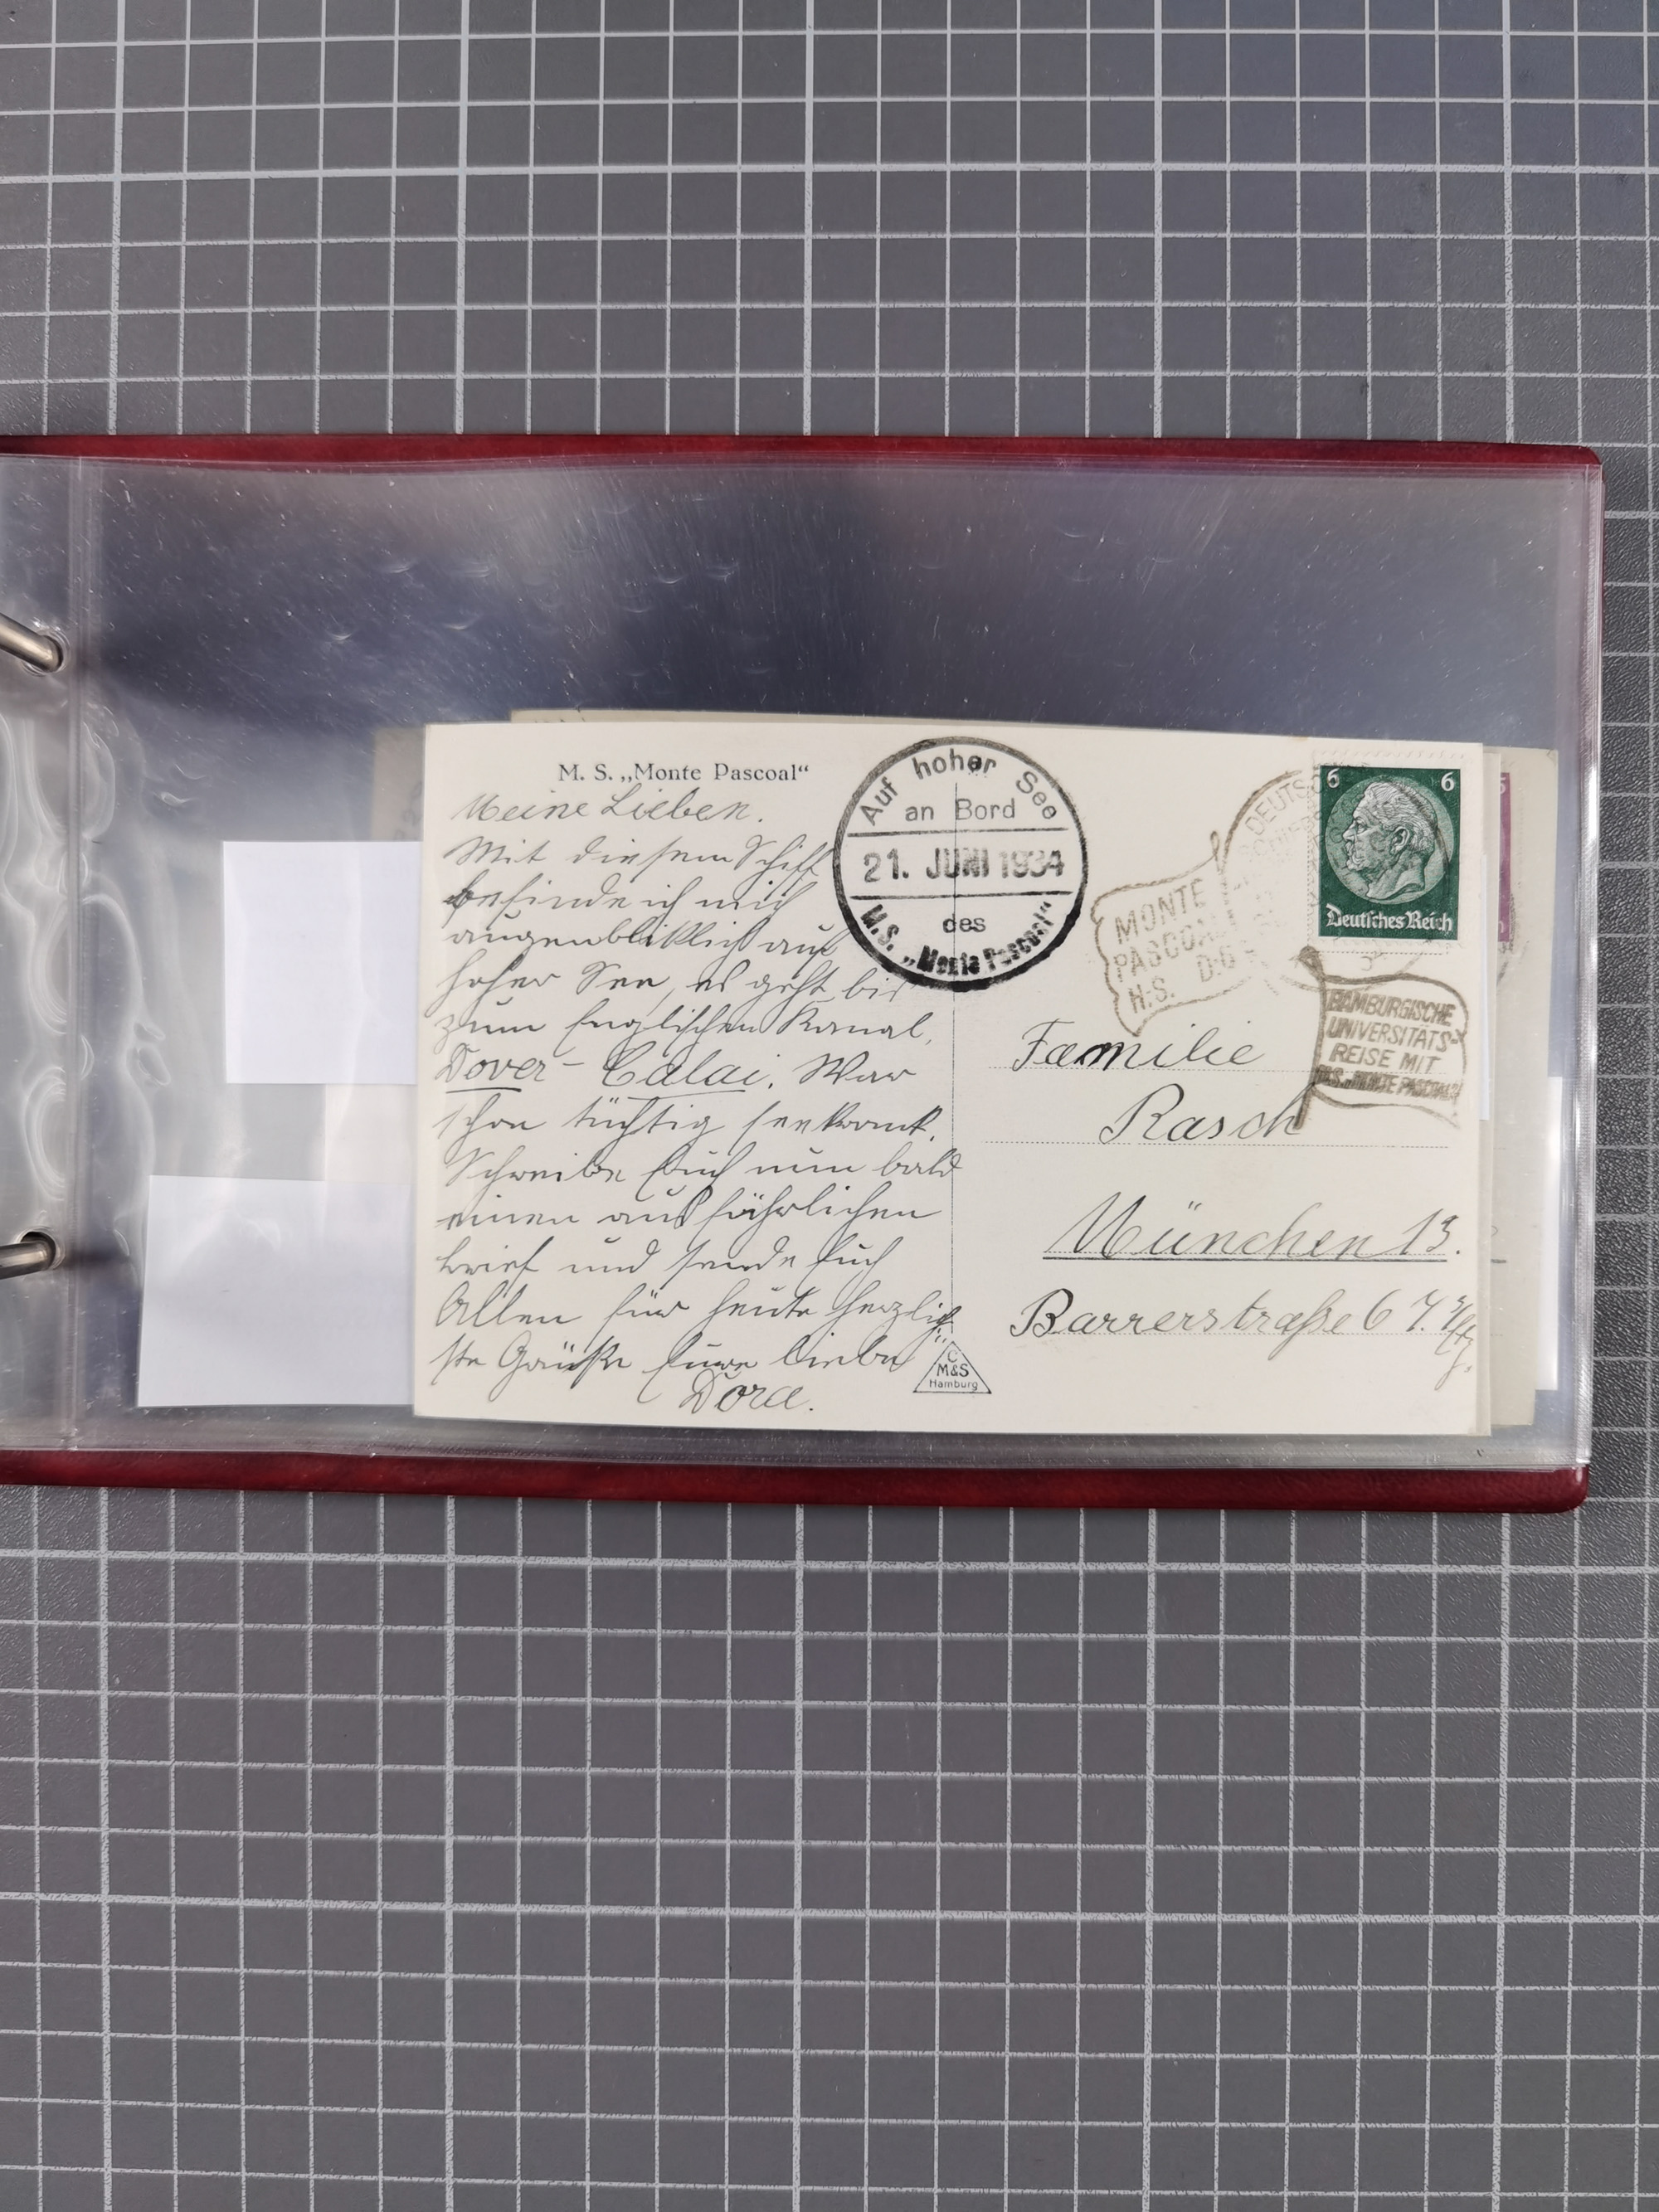 M. S. „Monte Pascoal“
Meine Lieben.
Mit diesem Schiff
befinde ich mich
augenbliklich auf
hoher See, es geht bis
zum Englischen Kanal,
Dover - Calai. War
schon tüchtig seekrank.
Schreibe Euch nun bald
einen ausführlichen
Brief und sende Euch
Allen für heute herzlich-
ste Grüße Eure liebe
Dora.
C
M&S
Hamburg
Auf hoher See
an Bord
21. JUNI 1934
des
M.S. „Monte Pascoal“
MONTE
PASCOAL
H.S. D.G
DEUTSCHE
6 6
Deutsches Reich
HAMBURGISCHE
UNIVERSITÄTS-
REISE MIT
M.S. „MONTE PASCOAL“
Familie
Rasch
München 13.
Barrerstraße 67.